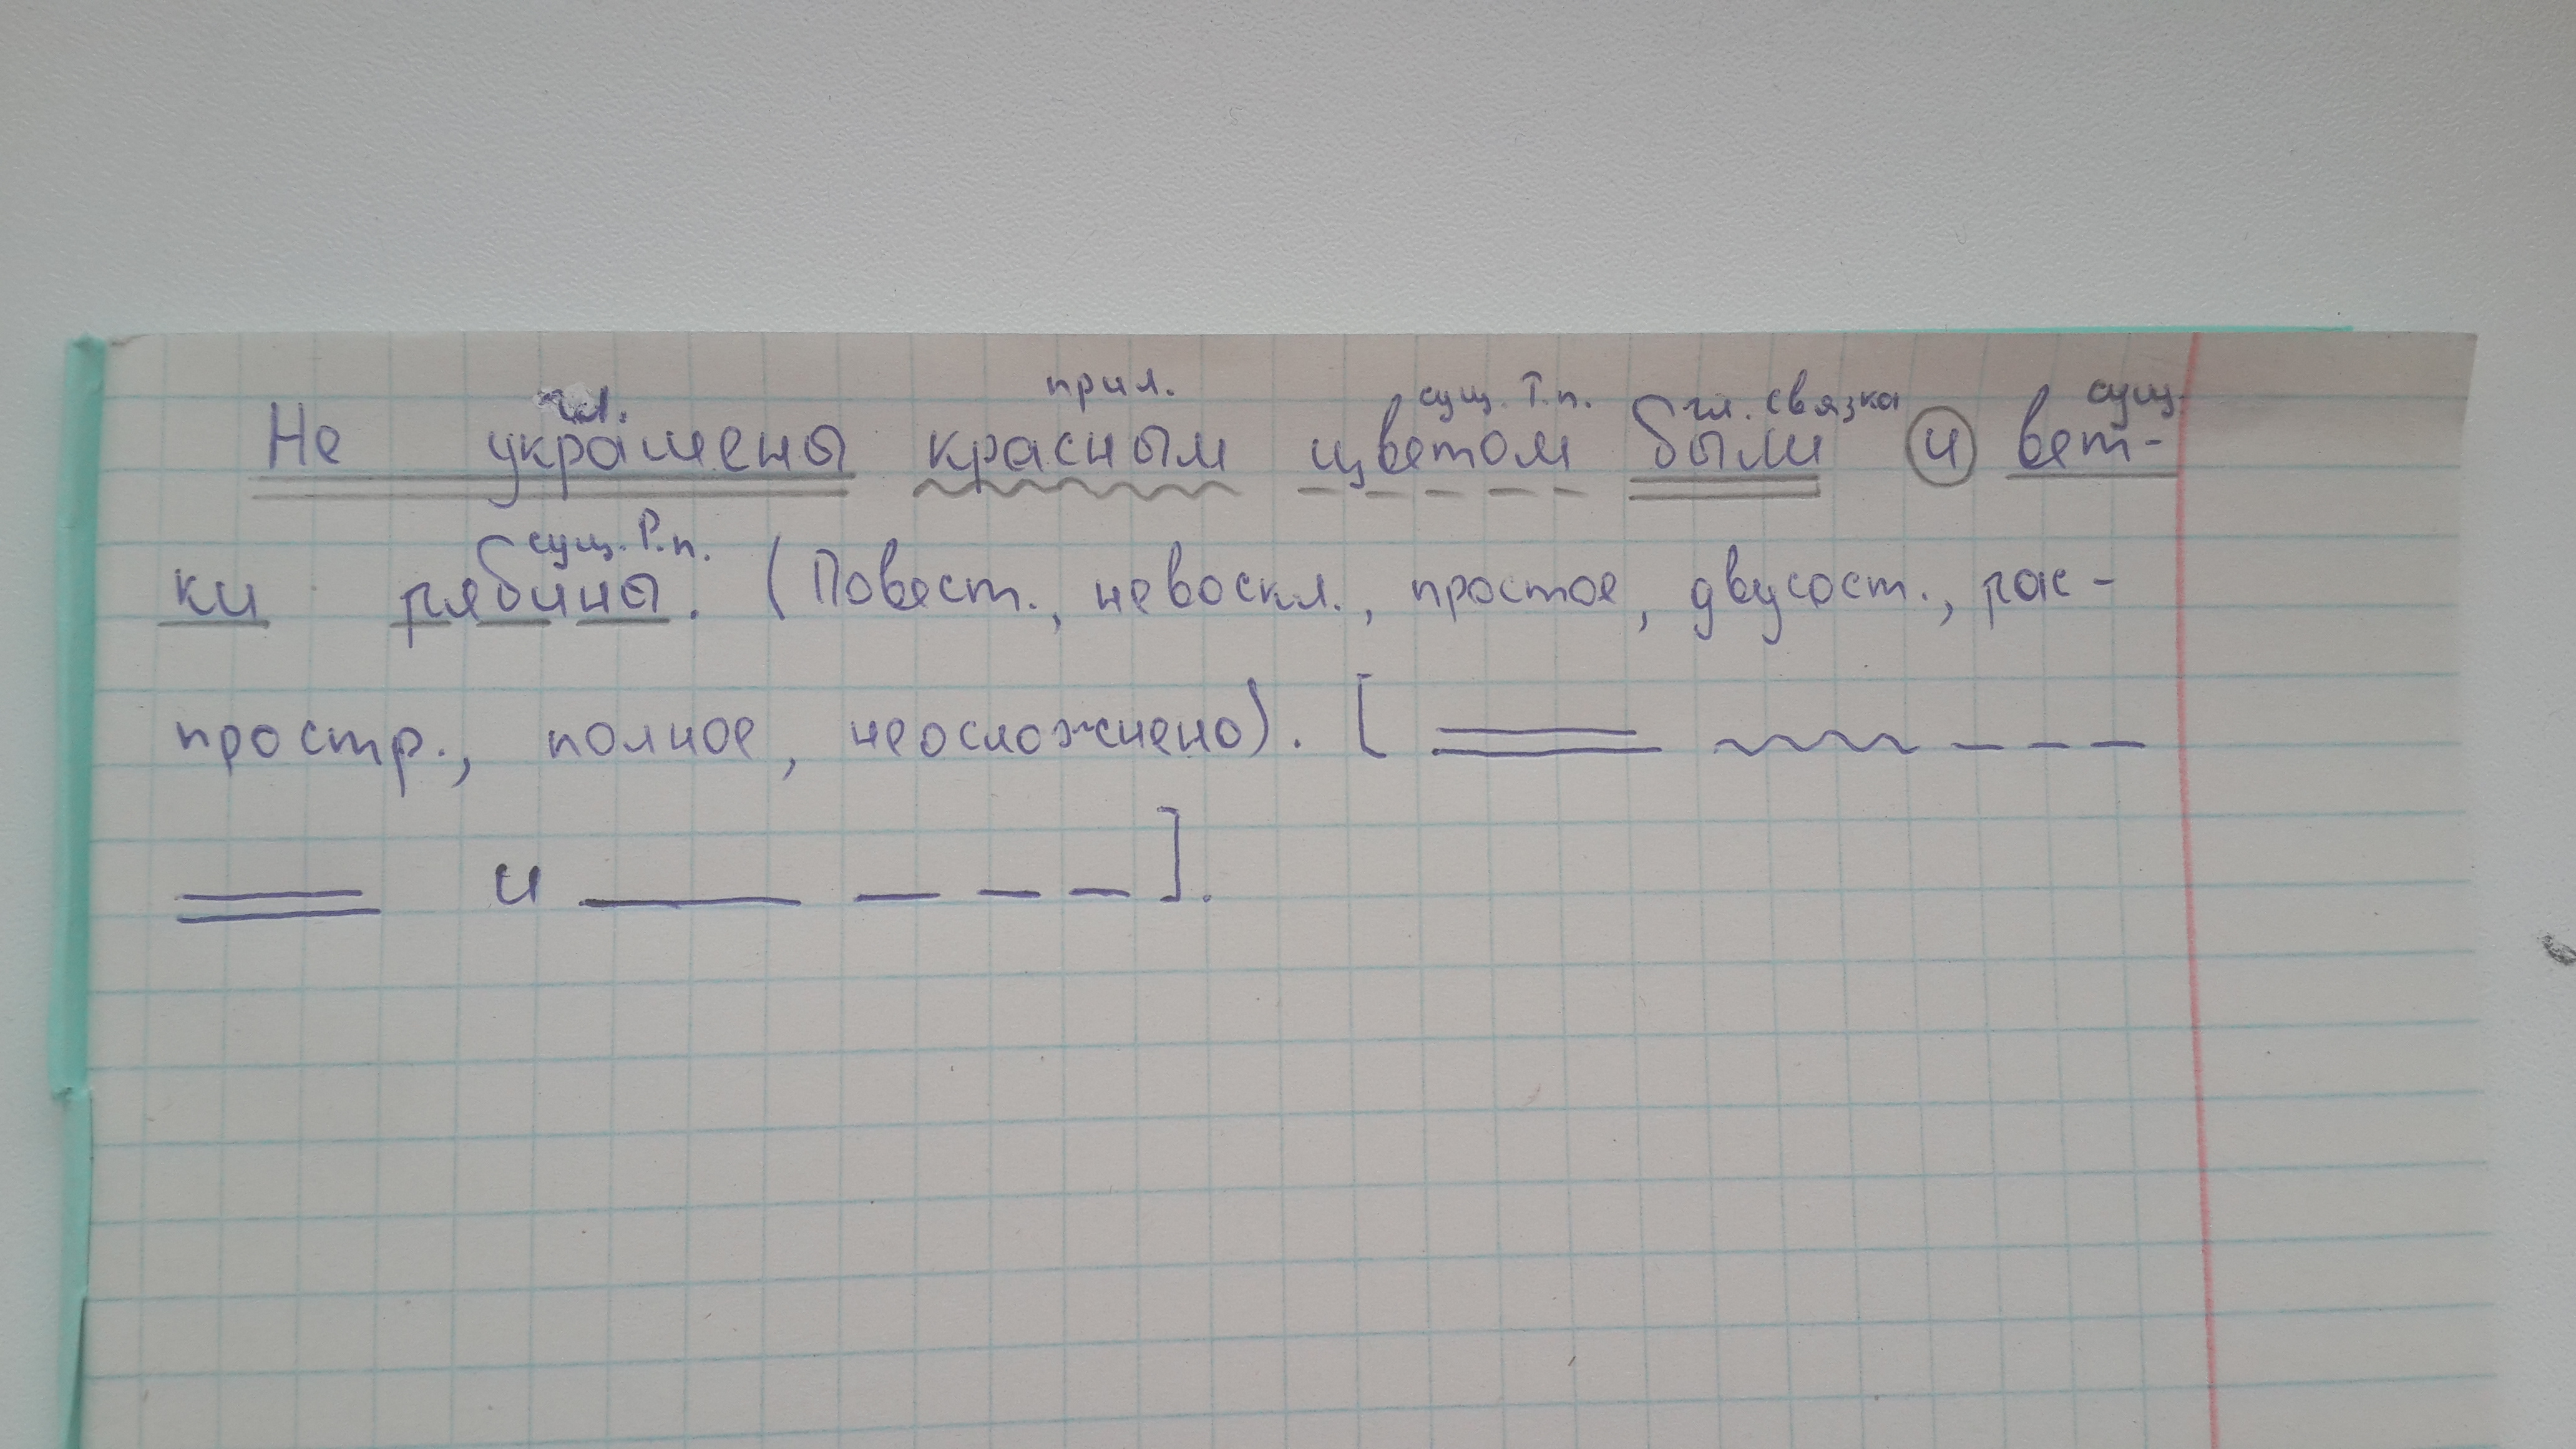 гл. прил. сущ. Т.п. гл. связка сущ.
Не украшены красным цветом были и вет-
сущ. Р.п.
ки рябины. (Повест., невоскл., простое, двусост., рас-
простр., полное, неосложнено). [
и ].